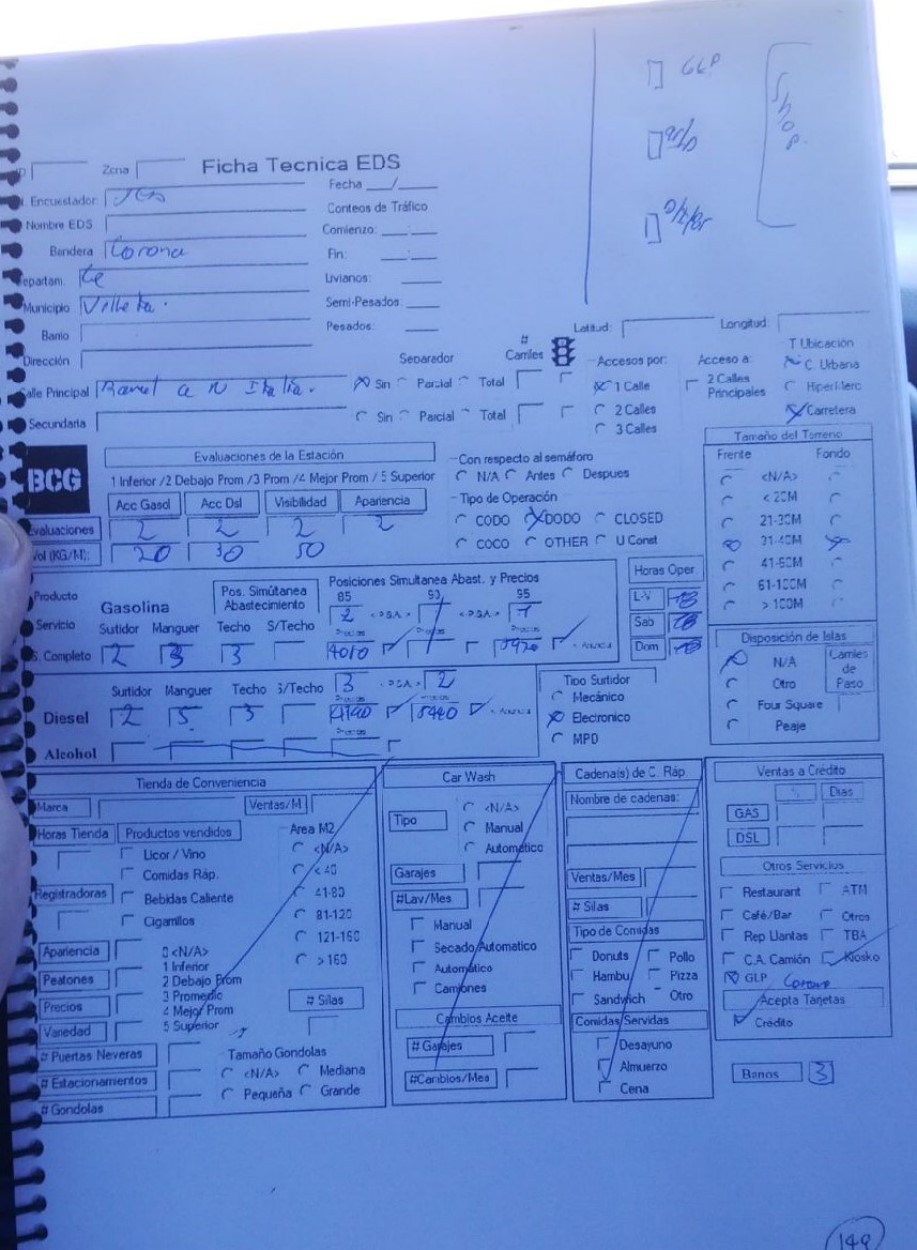 GLP
Shop
Zona
Ficha Tecnica EDS
Fecha ___/____
N. Encuestador
Conteos de Tráfico
Nombre EDS
Comienzo: ___:___
Bandera Corona
Fin: ___:___
Departam. Ce
Livianos: ____
Municipio Villeta.
Semi-Pesados: ____
Barrio
Pesados: ____
Latitud: Longitud:
Dirección
Separador # Carriles Accesos por: Acceso a: T Ubicación
Calle Principal Ramal a N Italia. Sin Parcial Total 1 Calle 2 Calles Principales C. Urbana
HiperMerc
Secundaria Sin Parcial Total 2 Calles Carretera
3 Calles
BCG
Evaluaciones de la Estación
1 Inferior /2 Debajo Prom /3 Prom /4 Mejor Prom / 5 Superior
Acc Gasol Acc Dsl Visibilidad Apariencia
Evaluaciones 2 2 2 2
Vol (KG/M): 20 30 50
Con respecto al semáforo
N/A Antes Despues
Tipo de Operación
CODO DODO CLOSED
COCO OTHER U Const
Tamaño del Terreno
Frente Fondo
<N/A>
< 20M
21-30M
31-40M
41-60M
61-100M
> 100M
Producto Gasolina
Pos. Simultanea Abastecimiento
Posiciones Simultanea Abast. y Precios
85 93 95
2 1
Servicio Surtidor Manguer Techo S/Techo
S. Completo 2 3 3
4010 5420
Horas Oper.
L-V 18
Sab 18
Dom 18
Disposición de Islas
N/A
Otro
Four Square
Peaje
Carriles de Paso
Surtidor Manguer Techo S/Techo
Diesel 2 5 3
3 2
4140 5440
Alcohol
Tipo Surtidor
Mecánico
Electronico
MPD
Tienda de Conveniencia
Marca Ventas/M
Horas Tienda Productos vendidos Area M2
Licor / Vino
Comidas Ráp.
Registradoras Bebidas Caliente
Cigarrillos
<N/A>
< 40
41-80
81-120
121-160
> 160
Apariencia 0 <N/A>
1 Inferior
Peatones 2 Debajo Prom
3 Promedio
Precios 4 Mejor Prom
5 Superior
Variedad
# Sillas
# Puertas Neveras Tamaño Gondolas
# Estacionamientos <N/A> Mediana
# Gondolas Pequeña Grande
Car Wash
Tipo
<N/A>
Manual
Automático
Garajes
#Lav/Mes
Manual
Secado Automatico
Automático
Camiones
Cambios Aceite
# Garajes
#Cambios/Mes
Cadena(s) de C. Ráp
Nombre de cadenas:
Ventas/Mes
# Sillas
Tipo de Comidas
Donuts Pollo
Hambu Pizza
Sandwich Otro
Comidas Servidas
Desayuno
Almuerzo
Cena
Ventas a Crédito
% Dias
GAS
DSL
Otros Servicios
Restaurant ATM
Café/Bar Otros
Rep Llantas TBA
C.A. Camión Kiosko
GLP Corona
Acepta Tarjetas
Crédito
Banos 3
149